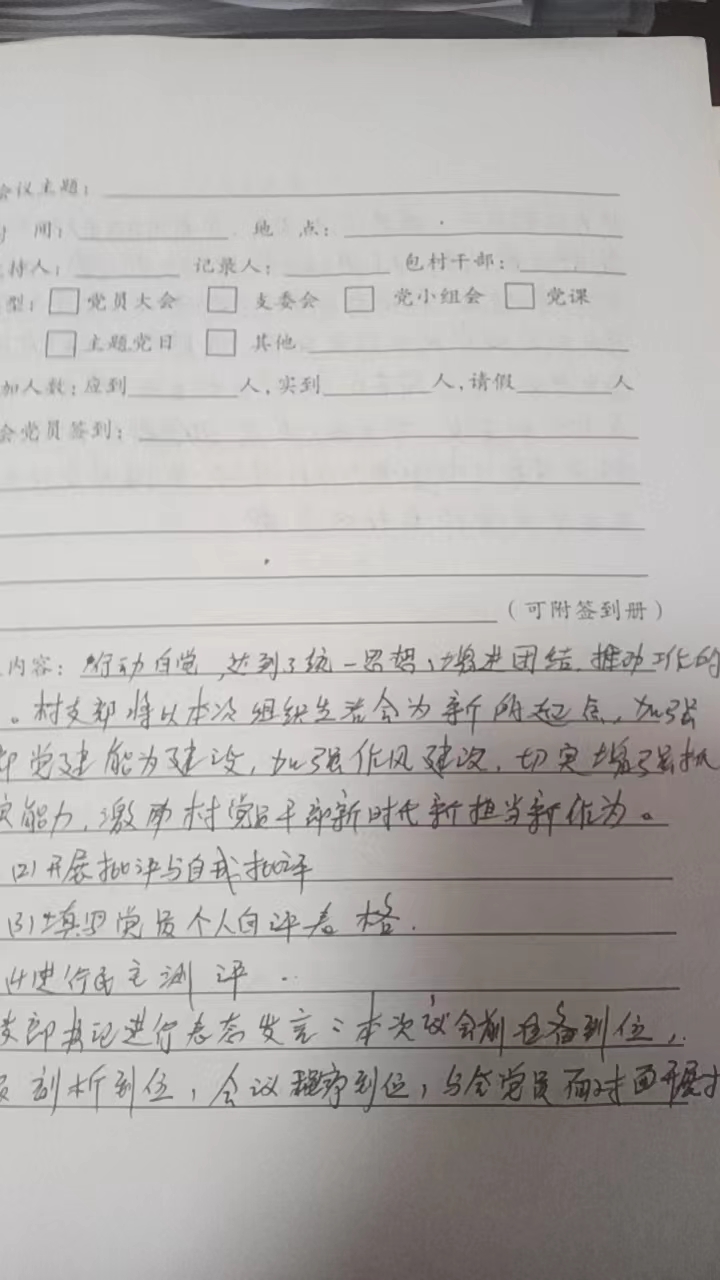 会议主题：
时 间： 地 点：
主持人： 记录人： 包村干部：
型： 党员大会 支委会 党小组会 党课
主题党日 其他
加人数：应到 人，实到 人，请假 人
会党员签到：
（可附签到册）
内容：行动自觉，达到了统一思想、增进团结、推动工作的
。村支部将以本次组织生活会为新的起点，加强
部党建能力建设，加强作风建设，切实增强抓
实能力，激励村党员干部新时代新担当新作为。
(2)开展批评与自我批评
(3)填写党员个人自评表格.
(4)进行民主测评
支部书记进行表态发言：本次议会前准备到位，
员剖析到位，会议程序到位，与会党员面对面开展